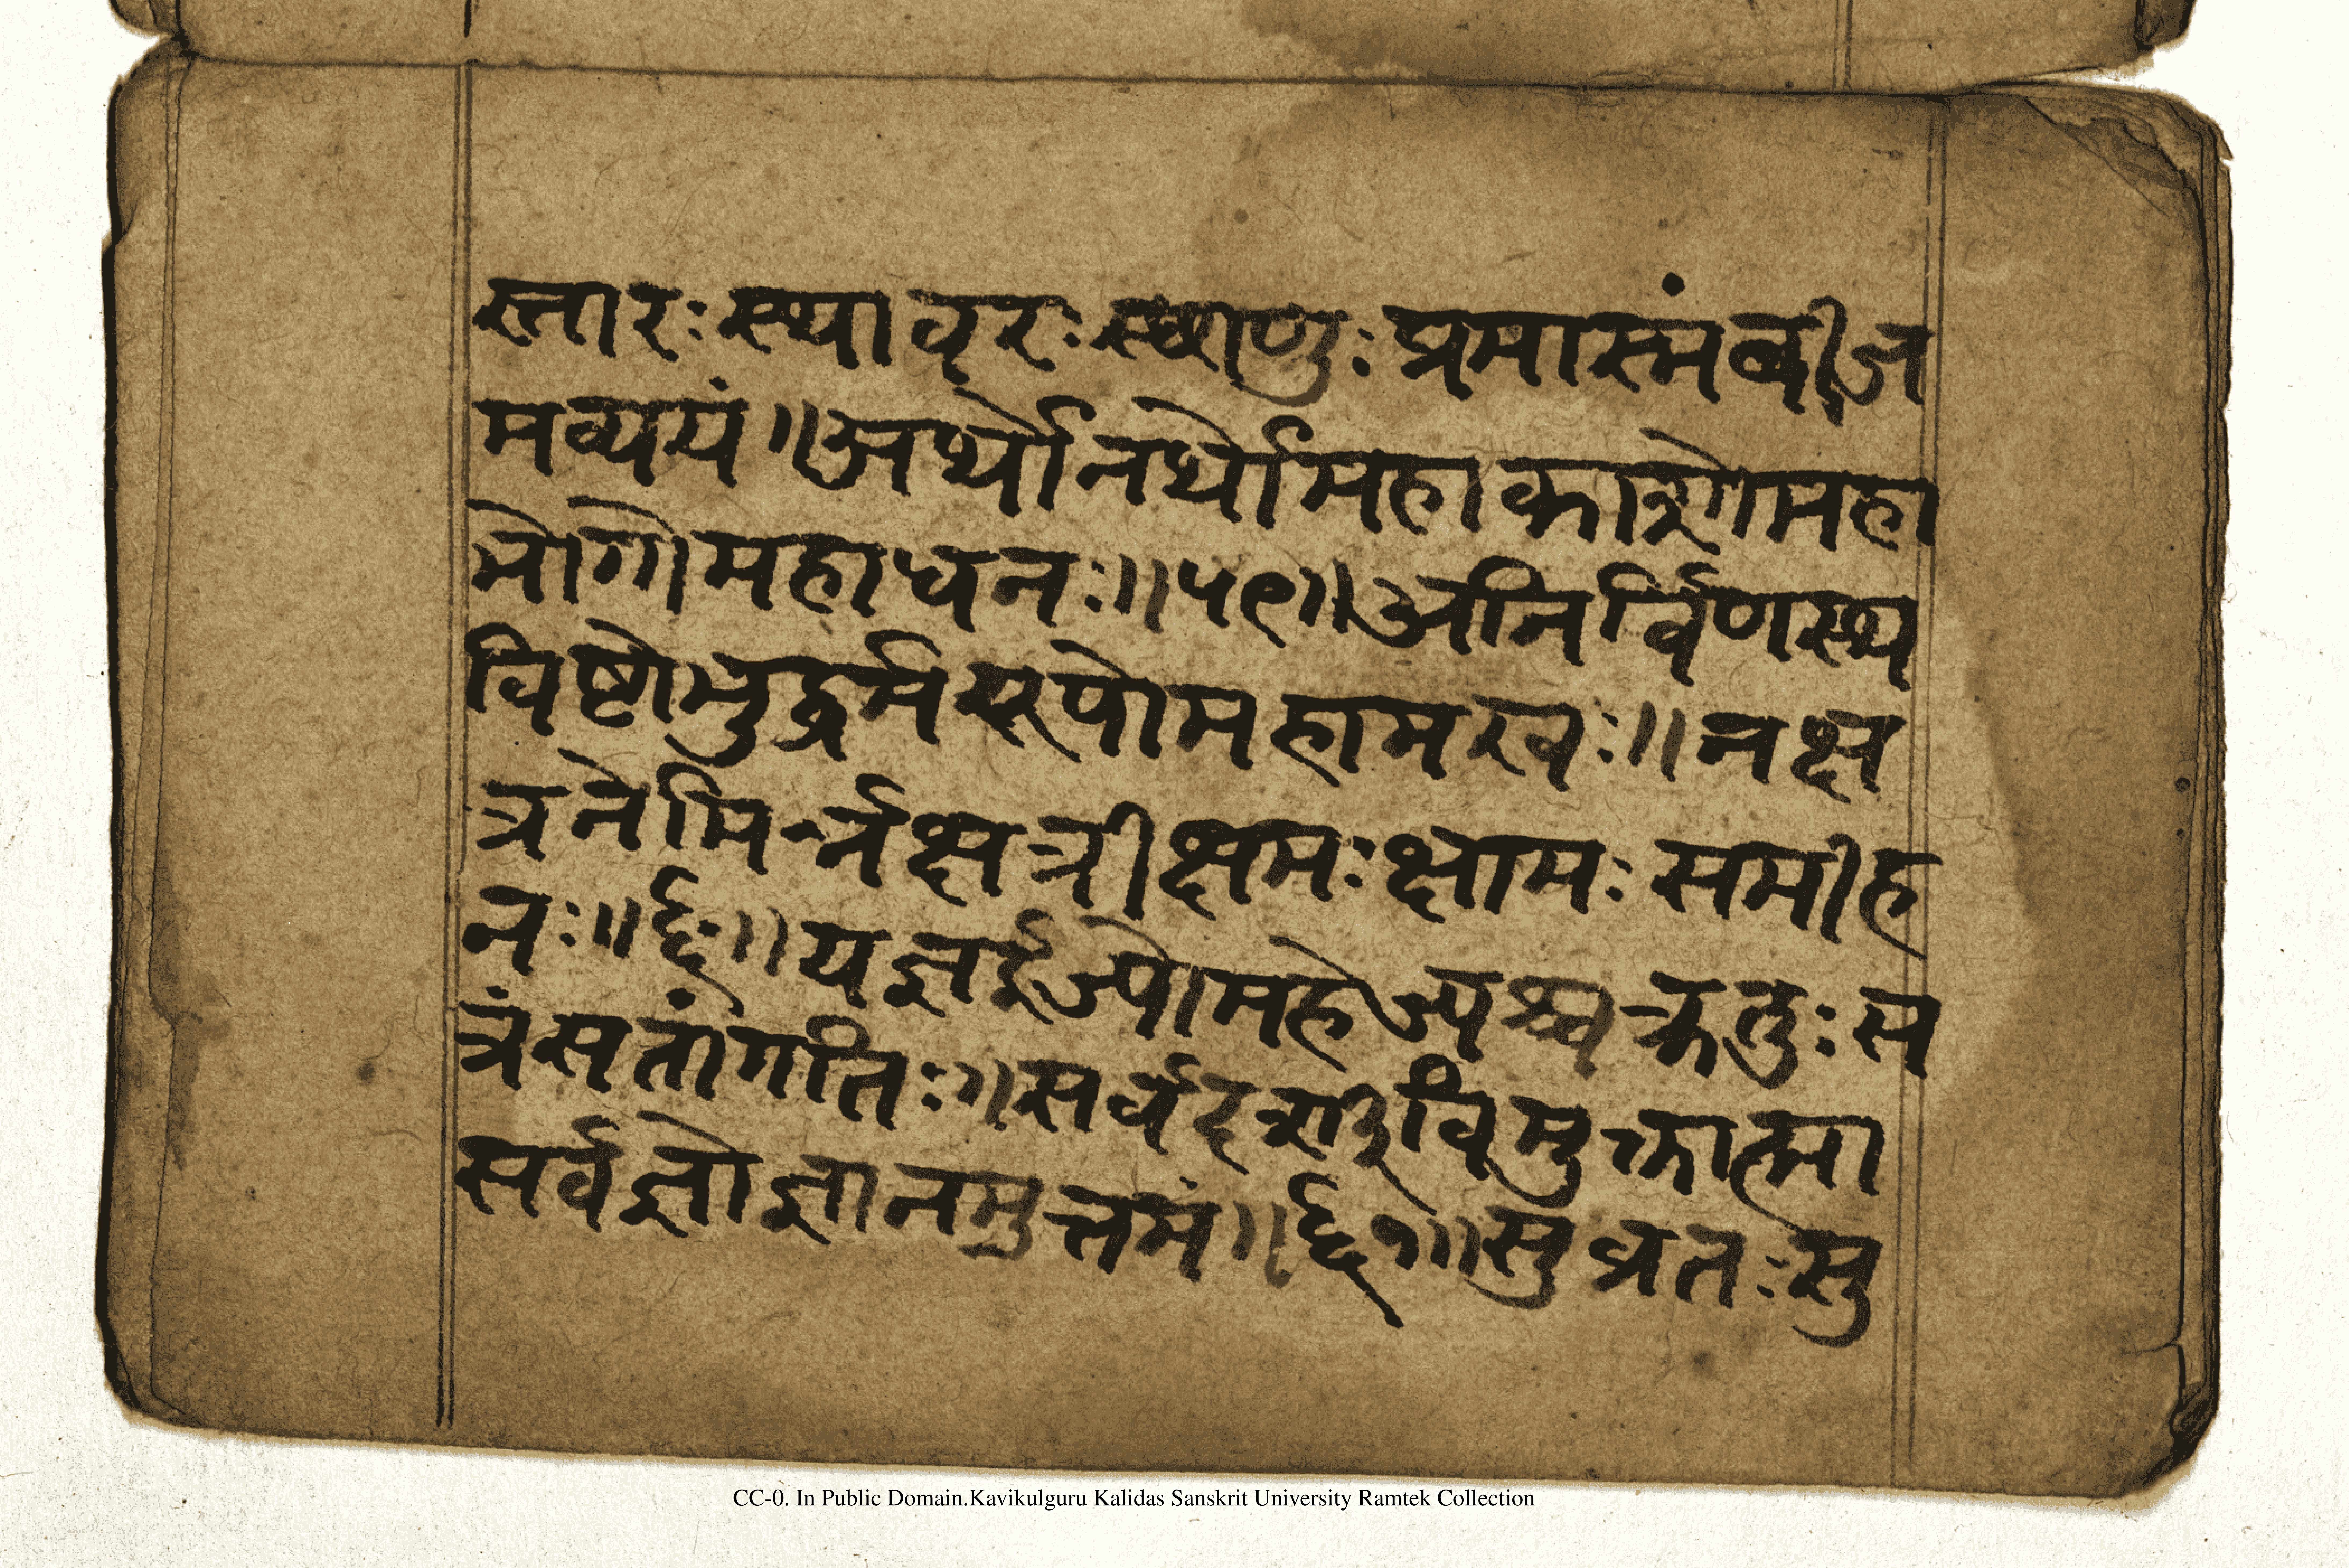 स्तारः स्थावरः स्थाणुः प्रमास्मं बीज
मव्ययं ॥ अर्थोनर्थो महाकाशो महा
भोगो महाधनः ॥ ५९ ॥ अनिर्विणस्थ
विष्टो भुर्द्धर्मयूपो महामखः ॥ नक्ष
त्रनेमिर्नक्षत्री क्षमः क्षामः समीह
नः ॥ ६० ॥ यज्ञ ईज्यो महेज्यश्च क्रतुः स
त्रं सतां गतिः ॥ सर्वदर्शी विमुक्तात्मा
सर्वज्ञो ज्ञानमुत्तमं ॥ ६१ ॥ सुव्रतः सु
CC-0. In Public Domain.Kavikulguru Kalidas Sanskrit University Ramtek Collection